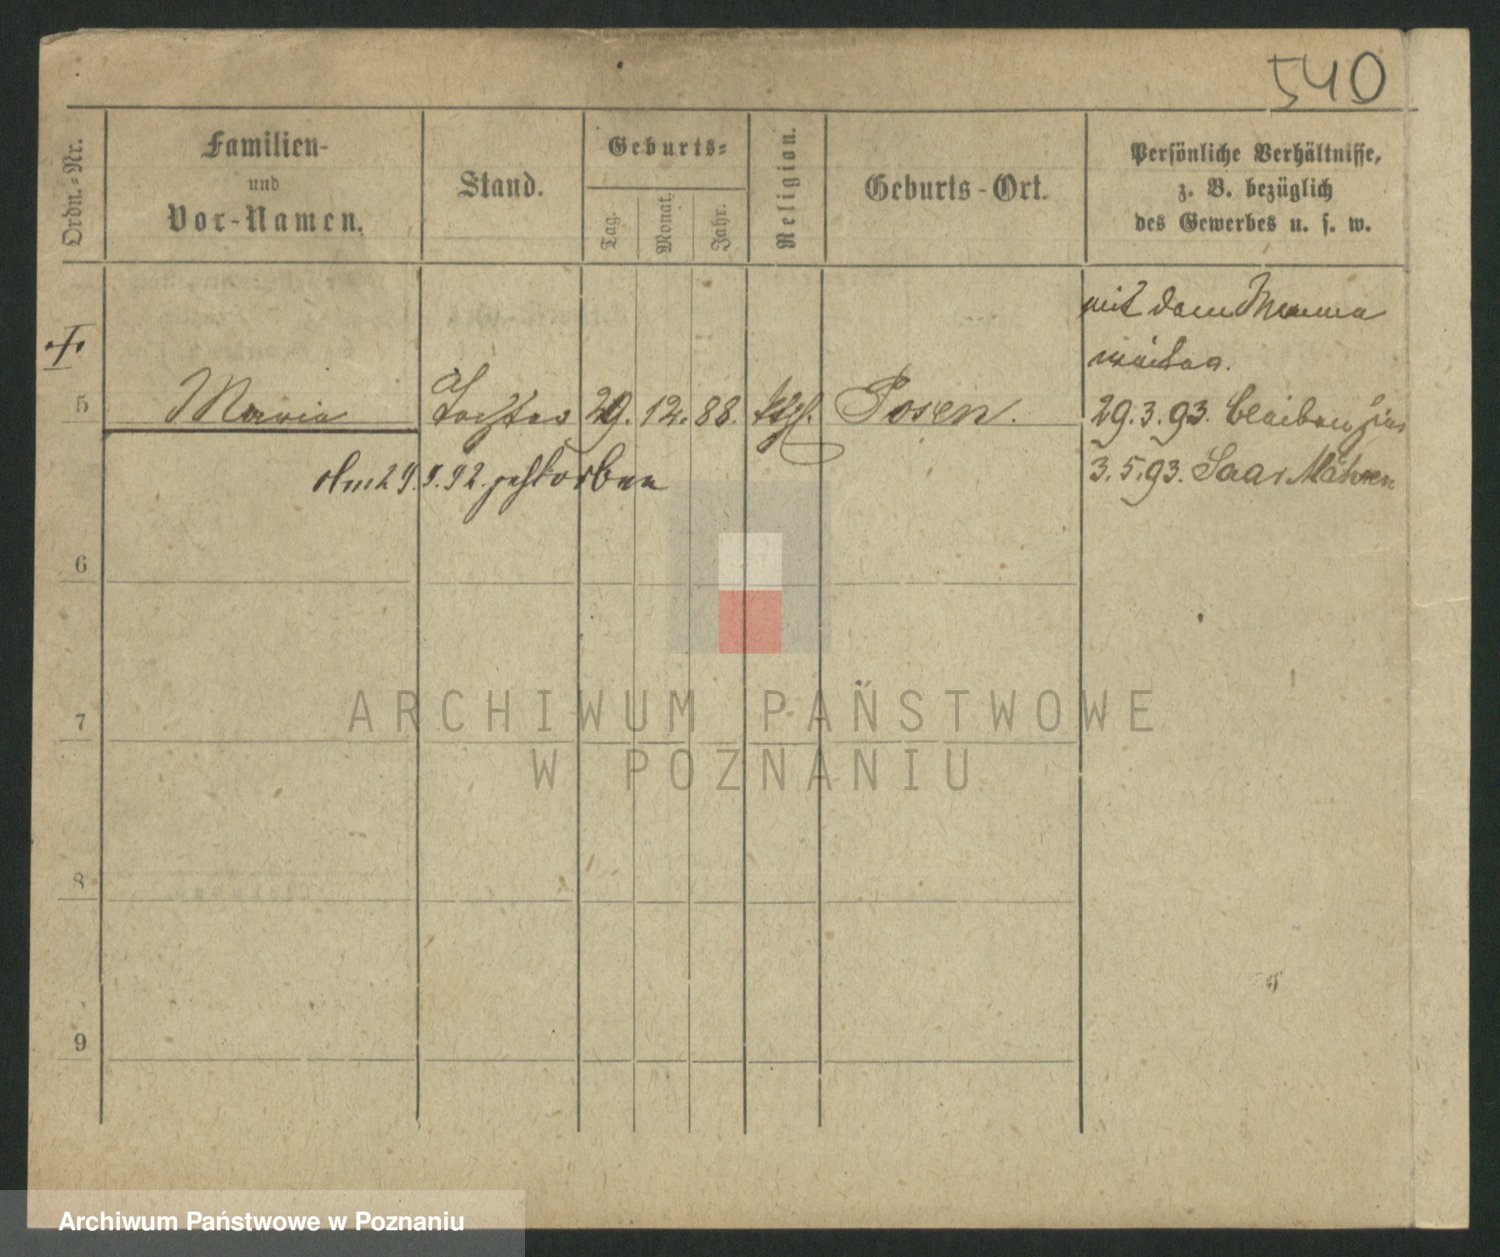 540
Ordn.-Nr.
Familien-
und
Vor-Namen.
Stand.
Geburts-
Tag.
Monat.
Jahr.
Religion.
Geburts-Ort.
Persönliche Verhältnisse,
z. B. bezüglich
des Gewerbes u. s. w.
mit dem Manne
weiter.
5 Maria Tochter 29. 12. 88. kthl. Posen. 29.3.93. bleiben hier
am 29. 92. gestorben 3.5.93. Saar Mähren
6
7
8
9
ARCHIWUM PAŃSTWOWE
W POZNANIU
Archiwum Państwowe w Poznaniu